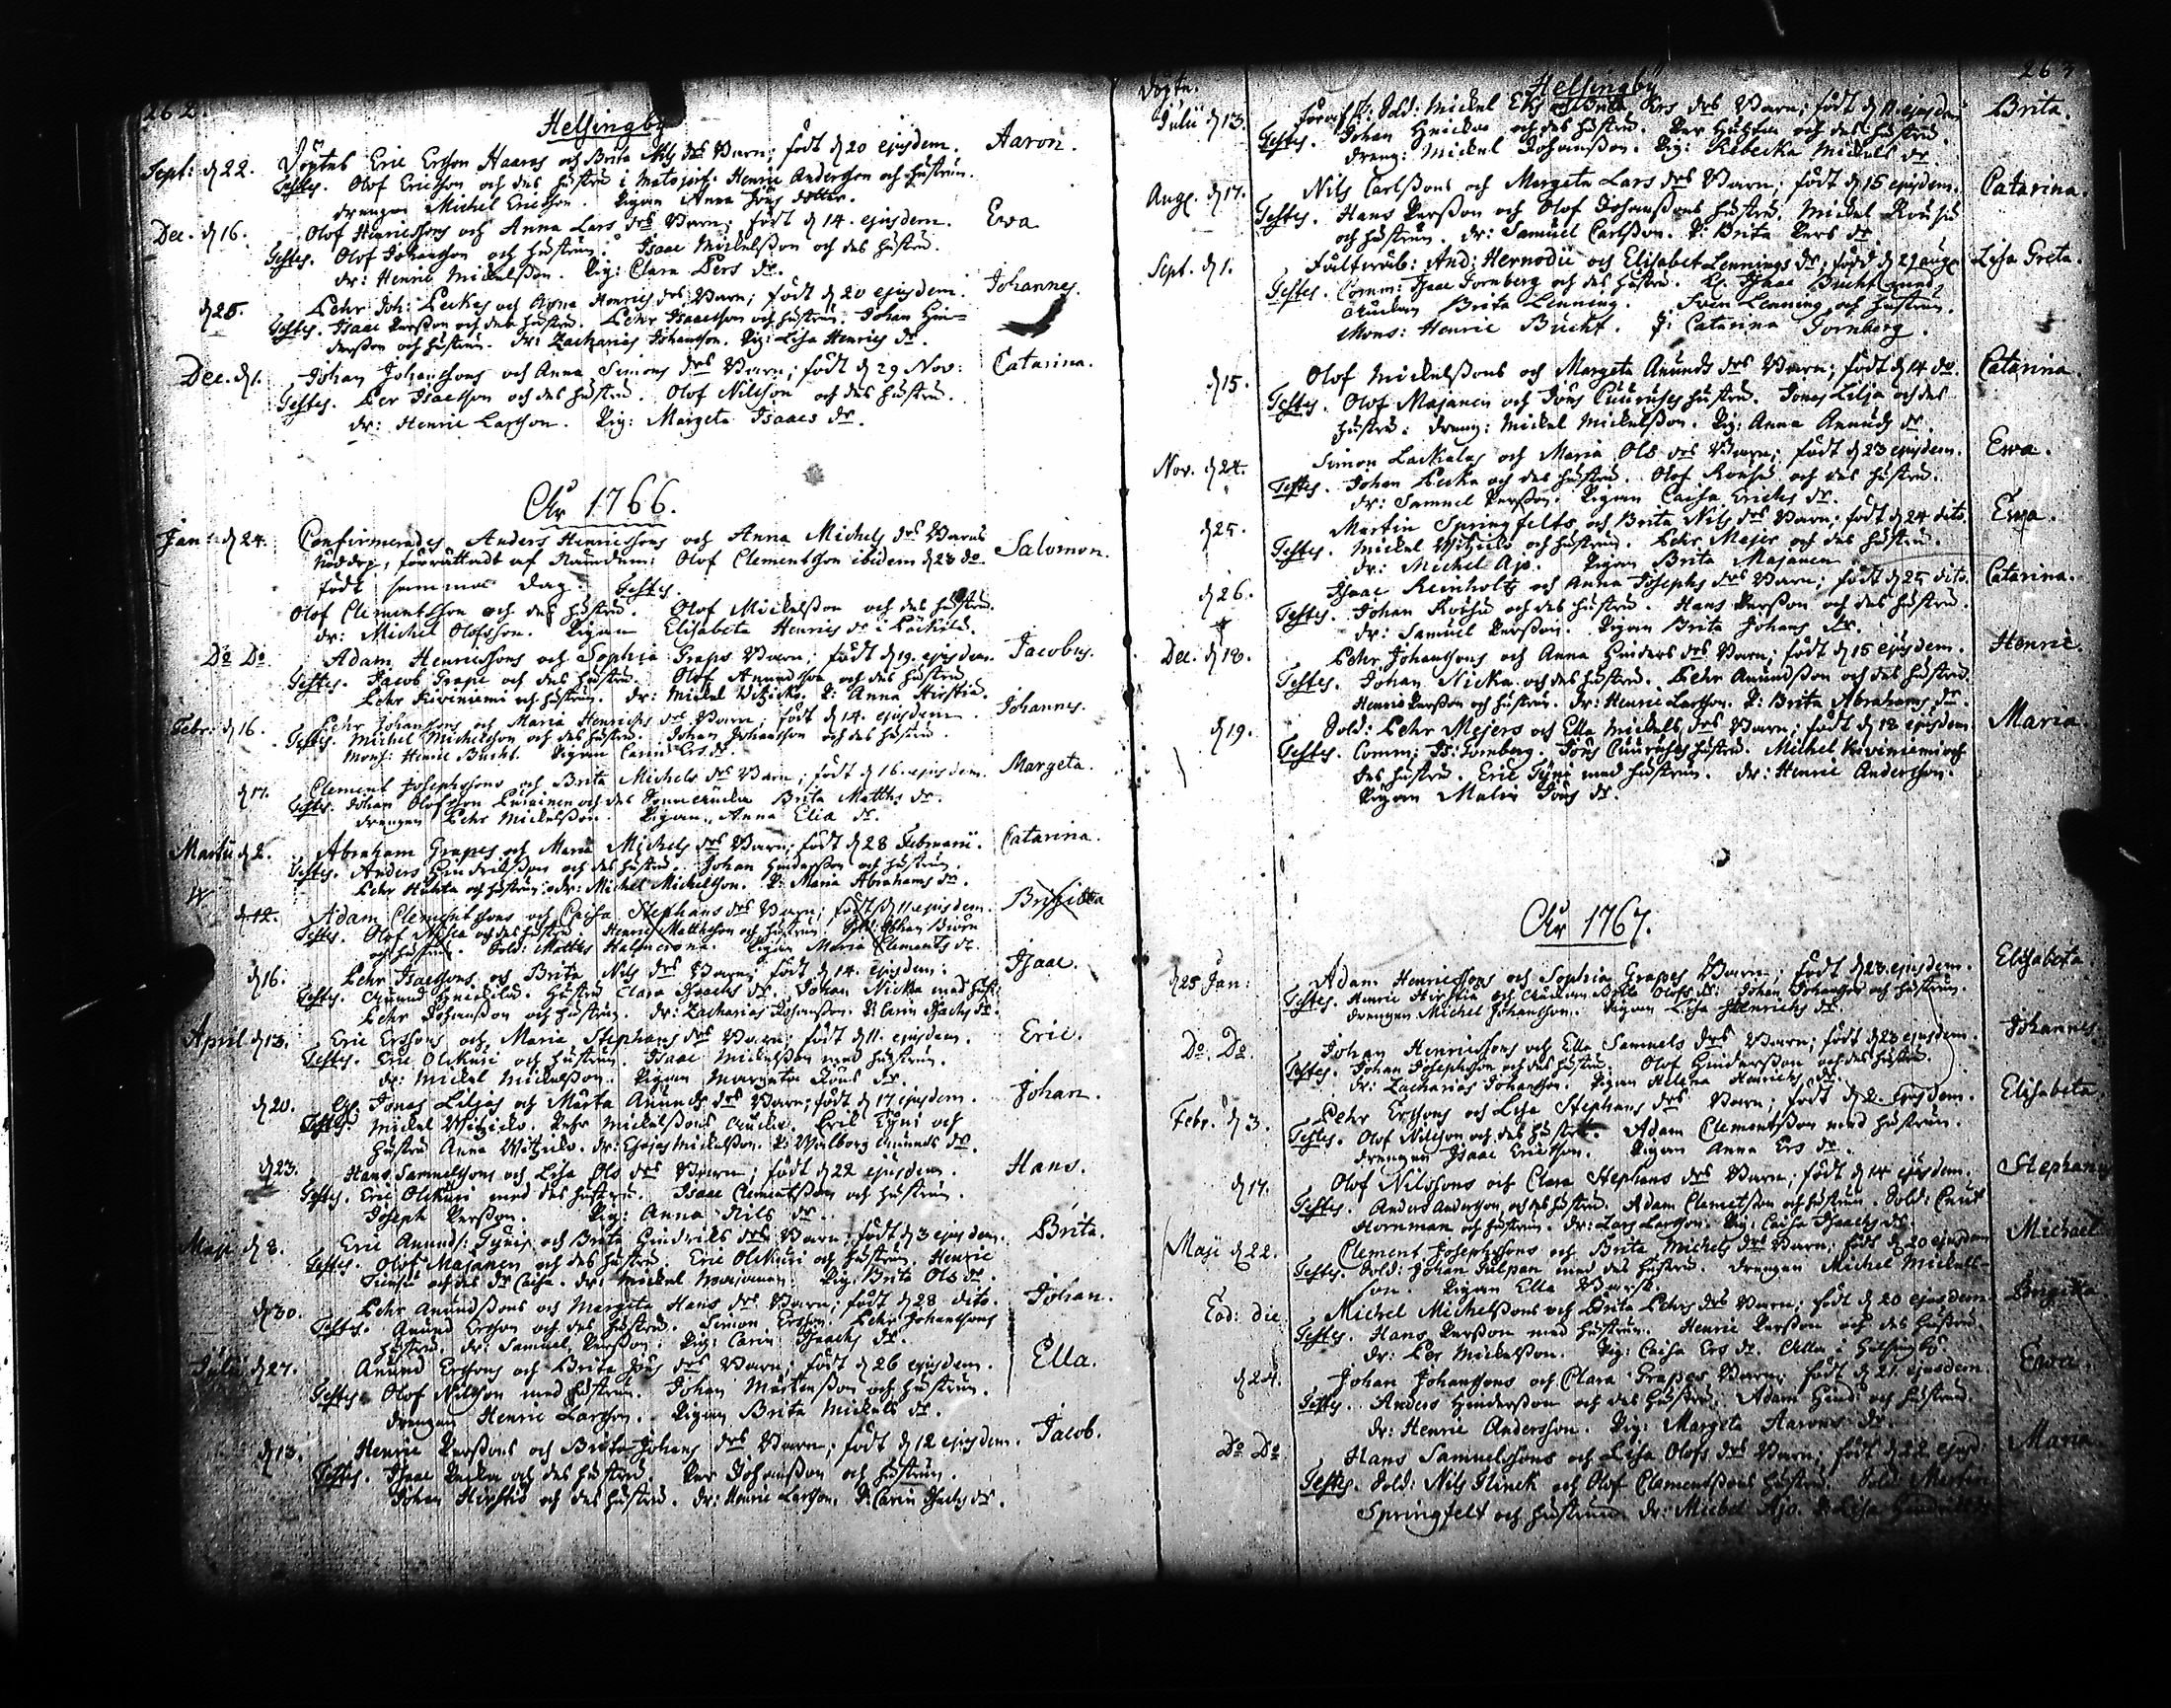 262.
Helsingby
Sept: d. 22. Döptes Eric Ersson Haaras och Brita Nils drs Barn; födt d. 20 ejusdem. Aaron.
Testes. Olof Ericsson och des hustru i Matojerf. Henric Andersson och hustrun.
drengen Michel Ericsson. Pigan Anna Jöns dotter.
Dec. d. 16. Olof Henricssons och Anna Lars drs Barn; födt d. 14. ejusdem. Ewa
Testes. Olof Johansson och hustrun. Isaac Mickelsson och des hustru.
dr: Henric Mickelsson. Pig: Clara Pers dr.
d. 25. Pehr Joh: Peckas och Anna Henrics drs Barn; födt d. 20 ejusdem. Johannes.
Testes. Isaac Persson och des hustru. Pehr Isaacsson och hustrun. Johan Hin-
dersson och hustrun. dr: Zacharias Johansson. Pig: Lisa Henrics dr.
Dec. d. 1. Johan Johanssons och Anna Simons drs Barn; födt d. 29 Nov: Catarina.
Testes. Per Isacsson och des hustru. Olof Nilsson och des hustru.
dr: Henric Larsson. Pig: Margeta Isaacs dr.
Åhr 1766.
Jan: d. 24. Confirmerades Anders Henricssons och Anna Michels drs Barns
Nöddop, förrättadt af Nämdem: Olof Clementsson ibidem d. 23 do. Salomon.
födt samma dag. Testes.
Olof Clementsson och des hustru. Olof Mickelsson och des hustru.
dr: Michel Olofsson. Pigan Elisabeta Henrics dr i
Do Do Adam Henricssons och Sophia Graps Barn; födt d. 19. ejusdem. Jacobus.
Testes. Jacob Grape och des hustru. Olof Anundsson och des hustru
Pehr Kiviniemi och hustrun. dr: Mickel Witziko. P: Anna Hirstio.
Febr: d. 16. Pehr Johanssons och Maria Henrichs drs Barn; födt d. 14. ejusdem. Johannes.
Testes. Michel Michelsson och des hustru. Johan Johansson och des hustru
Mons: Henric Bucht. Pigan Carin Ers dr.
d. 17. Clement Josephssons och Brita Michels drs Barn; födt d. 16. ejusdem. Margeta.
Testes. Johan Olofsson och des Brita Matths dr.
drengen Pehr Mickelsson. Pigan Anna Elia dr.
Martii d. 2. Abraham Grapes och Maria Michels drs Barn; födt d. 28 Februarii. Catarina.
Testes. Anders Hindricksson och des hustru. Johan Hindersson och hustrun.
Pehr Huhta och hustrun. dr: Michel Michelsson. P: Maria Abrahams dr.
d. 12. Adam Clementssons och Caisa Stephans drs Barn; födt d. 11. ejusdem. Brigitta
Testes. Olof och des hustru. Henric Matthsson och hustrun. Sold: Johan Biörn
och hustrun. Sold: Matths Pigan Maria Clements dr.
d. 16. Pehr Isacssons och Brita Nils drs Barn; födt d. 14. ejusdem. Isaac.
Testes. Anund Hustru Clara Isaachs dr. Johan Nicka med hust:
Pehr Johansson och hustrun. dr: Zacharias Johansson. P: Carin Isachs dr.
April d. 13. Eric Erssons och Maria Stephans drs Barn; födt d. 11. ejusdem. Eric.
Testes. Eric Olikuri och hustrun. Isaac Mickelsson med hustrun.
dr: Mickel Mickelsson. Pigan Margeta Jöns dr.
d. 20. Jonas Liljas och Märta Anunds drs Barn; födt d. 17 ejusdem. Johan.
Testes. Mickel Witziko. Pehr Mickelssons Erik Tyni och
hustru Anna Witziko. dr: Mickelsson. P: Walborg Anunds dr.
d. 23. Hans Samuelssons och Lisa Ols drs Barn; födt d. 22 ejusdem. Hans.
Testes. Eric Olikuri med des hustru. Isaac Clementsson och hustrun.
Joseph Persson. Pig: Anna Nils dr.
Maji d. 8. Eric Anunds: Tynis och Brita Hindricks drs Barn; födt d. 3 ejusdem. Brita.
Testes. Olof Majanen och des hustru. Eric Olikuri och hustrun. Henric
och des dr Caisa. dr: Mickel Majanen. Pig: Brita Ols dr.
d. 30. Pehr Anundssons och Margeta Hans drs Barn; födt d. 28 dito. Johan.
Testes. Anund Ersson och des hustru. Simon Ersson. Pehr Johanssons
hustru. dr: Samuel Persson. Pig: Carin Isaachs dr.
d. 27. Anund Erssons och Brita Jöns drs Barn; födt d. 26 ejusdem. Ella.
Testes. Olof Nilsson med hustrun. Johan Mårtensson och hustrun.
drengen Henric Larsson. Pigan Brita Mickels dr.
d. 13. Henric Perssons och Brita Johans drs Barn; födt d. 12 ejusdem. Jacob.
Testes. Isaac Pecka och des hustru. Per Johansson och hustrun.
Johan Hirstio och des hustru. dr: Henric Larsson. P: Carin Isachs dr.
263
döpta.
Helsingby
Julii d. 13. Sold: Mickel och Brita Ers drs Barn; födt d. 11. ejusdem Brita.
Testes. Johan och des hustru. Per Huhta och des hustru.
dreng: Mickel Johansson. Pig: Rebecka Mickels dr.
Aug. d. 17. Nils Carlssons och Margeta Lars drs Barn; födt d. 15 ejusdem. Catarina.
Testes. Hans Persson och Olof Johanssons hustru. Mickel Rousu
och hustrun. dr: Samuel Carlsson. P: Brita Pers dr.
Sept. d. 1. And: Hernodii och Elisabet Lennings dr; född d. 29 aug. Lisa Greta.
Testes. Comm: Isaac Fornberg och des hustru. Isaac Bucht med
Brita Lenning. Sven Lenning och hustrun.
Mons: Henric Bucht. J: Catarina Fornberg.
d. 15. Olof Mickelssons och Margeta Anunds drs Barn; födt d. 14 do. Catarina.
Testes. Olof Majanen och Jöns hustru. Jonas Lilja och des
hustru. dreng: Mickel Mickelsson. Pig: Anna Anunds dr.
Nov. d. 24. Simon Lackalas och Maria Ols drs Barn; födt d. 23 ejusdem. Ewa.
Testes. Johan Pecka och des hustru. Olof Rousu och des hustru.
dr: Samuel Persson. Pigan Caisa Erichs dr.
d. 25. Martin Springfelts och Brita Nils drs Barn; födt d. 24 dito. Ewa.
Testes. Mickel Witziko och hustrun. Pehr Majer och des hustru.
dr: Michel Ajo. Pigan Brita Majanen
d. 26. Isaac Reinholts och Anna Josephs drs Barn; födt d. 25 dito. Catarina.
Testes. Johan Rousu och des hustru. Hans Persson och des hustru.
dr: Samuel Persson. Pigan Brita Johans dr.
Dec. d. 18. Pehr Johanssons och Anna Hinders drs Barn; födt d. 15 ejusdem. Henric.
Testes. Johan Nicka och des hustru. Pehr Anundsson och des hustru.
Henric Persson och hustrun. dr: Henric Larsson. P: Brita Abrahams dr.
d. 19. Sold: Pehr Mejers och Ella Mickels drs Barn; födt d. 18 ejusdem Maria.
Testes. Comm: Is: Fornberg. Jöns hustru. Michel Kiviniemi och
des hustru. Eric Tyni med hustrun. dr: Henric Andersson.
Pigan Malin Jöns dr.
Åhr 1767.
d. 25 Jan: Adam Henricssons och Sophia Grapes Barn; födt d. 23 ejusdem. Elisabeta
Testes. Henric Hirstio och Brita Olofs dr: Johan Johansson och hustrun.
drengen Michel Johansson. Pigan Lisa Henrichs dr.
Do. Do. Johan Henricssons och Ella Samuels drs Barn; födt d. 23 ejusdem. Johannes
Testes. Johan Josephsson och des hustru. Olof Hindersson och des hustru.
dr: Zacharias Johansson. Pigan Helena Henrichs dr.
Febr. d. 3. Pehr Erssons och Lisa Stephans drs Barn; födt d. 2. ejusdem. Elisabeta
Testes. Olof Nilsson och des hustru. Adam Clementsson med hustrun.
drengen Isaac Ericsson. Pigan Anna Ers dr.
d. 17. Olof Nilssons och Clara Stephans drs Barn; födt d. 14 ejusdem. Stephanus
Testes. Anders Andersson och des hustru. Adam Clemetsson och hustrun. Sold: Cnut
Hornman och hustrun. dr: Lars Larsson. Pig: Caisa Isaachs dr.
Maji d. 22. Clement Josephssons och Brita Michels drs Barn; födt d. 20 ejusdem Michael
Testes. Sold: Johan Tulpan med des hustru. drengen Michel Mickels-
son. Pigan Ella
Eod: die Michel Michelssons och Brita Pehrs drs Barn; födt d. 20 ejusdem. Brigitta
Testes. Hans Persson med hustrun. Henric Persson och des hustru.
dr: Per Mickelsson. Pig: Caisa Ers dr. Alla i Helsingby.
d. 24. Johan Johanssons och Clara Grapes Barn; födt d. 21. ejusdem. Ewa.
Testes. Anders Hindersson och des hustru. Adam Hind: och hustrun.
dr: Henric Andersson. Pig: Margeta Aarons dr.
Do Do Hans Samuelssons och Lisa Olofs drs Barn; födt d. 22 ejusd: Maria
Testes. Sold: Nils Flinck och Olof Clementssons hustru. Sold: Martin
Springfelt och hustrun. dr: Michel Ajo. P: Lisa